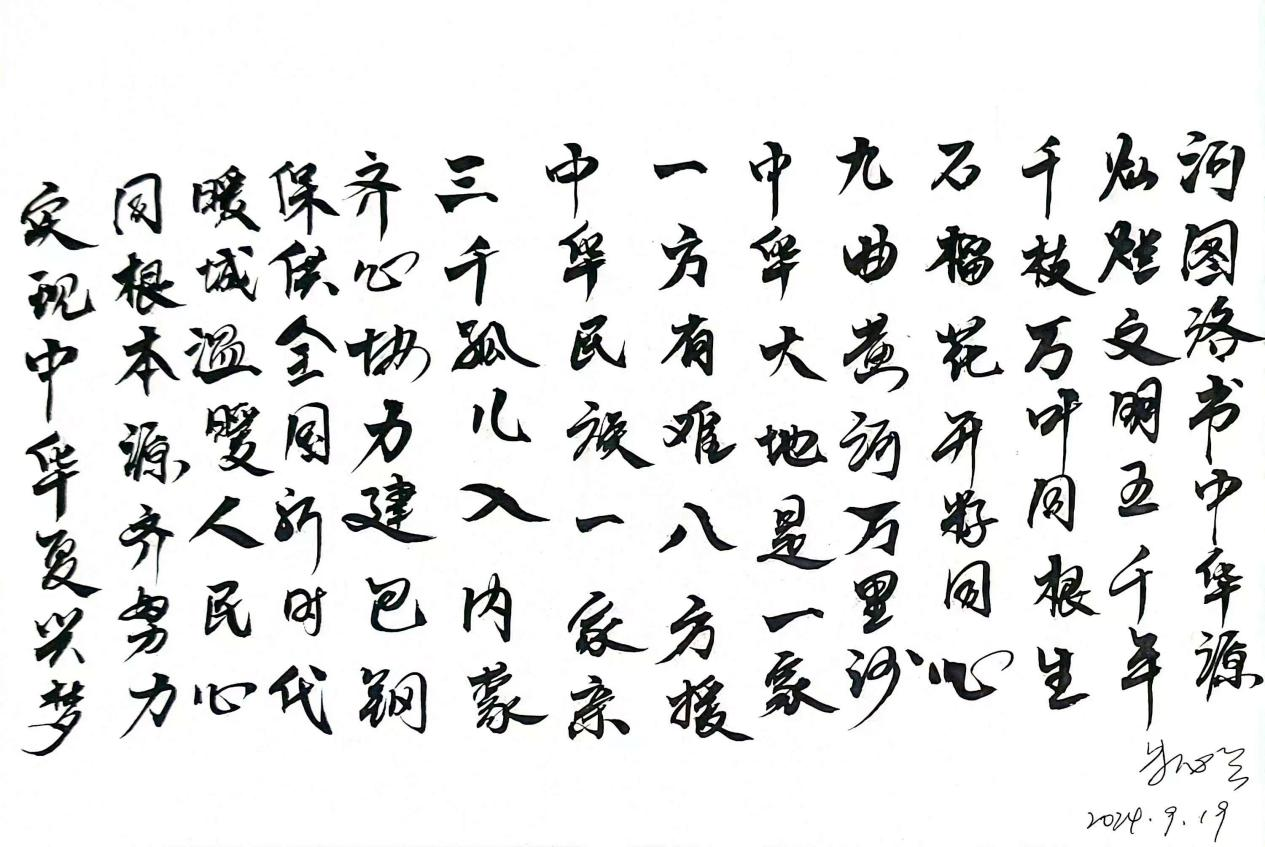 河图洛书中华源
灿烂文明五千年
千枝万叶同根生
石榴花开籽同心
九曲黄河万里沙
中华大地是一家
一方有难八方援
中华民族一家亲
三千孤儿入内蒙
齐心协力建包钢
保供全国新时代
暖城温暖人民心
同根本源齐努力
实现中华复兴梦
2024.9.19